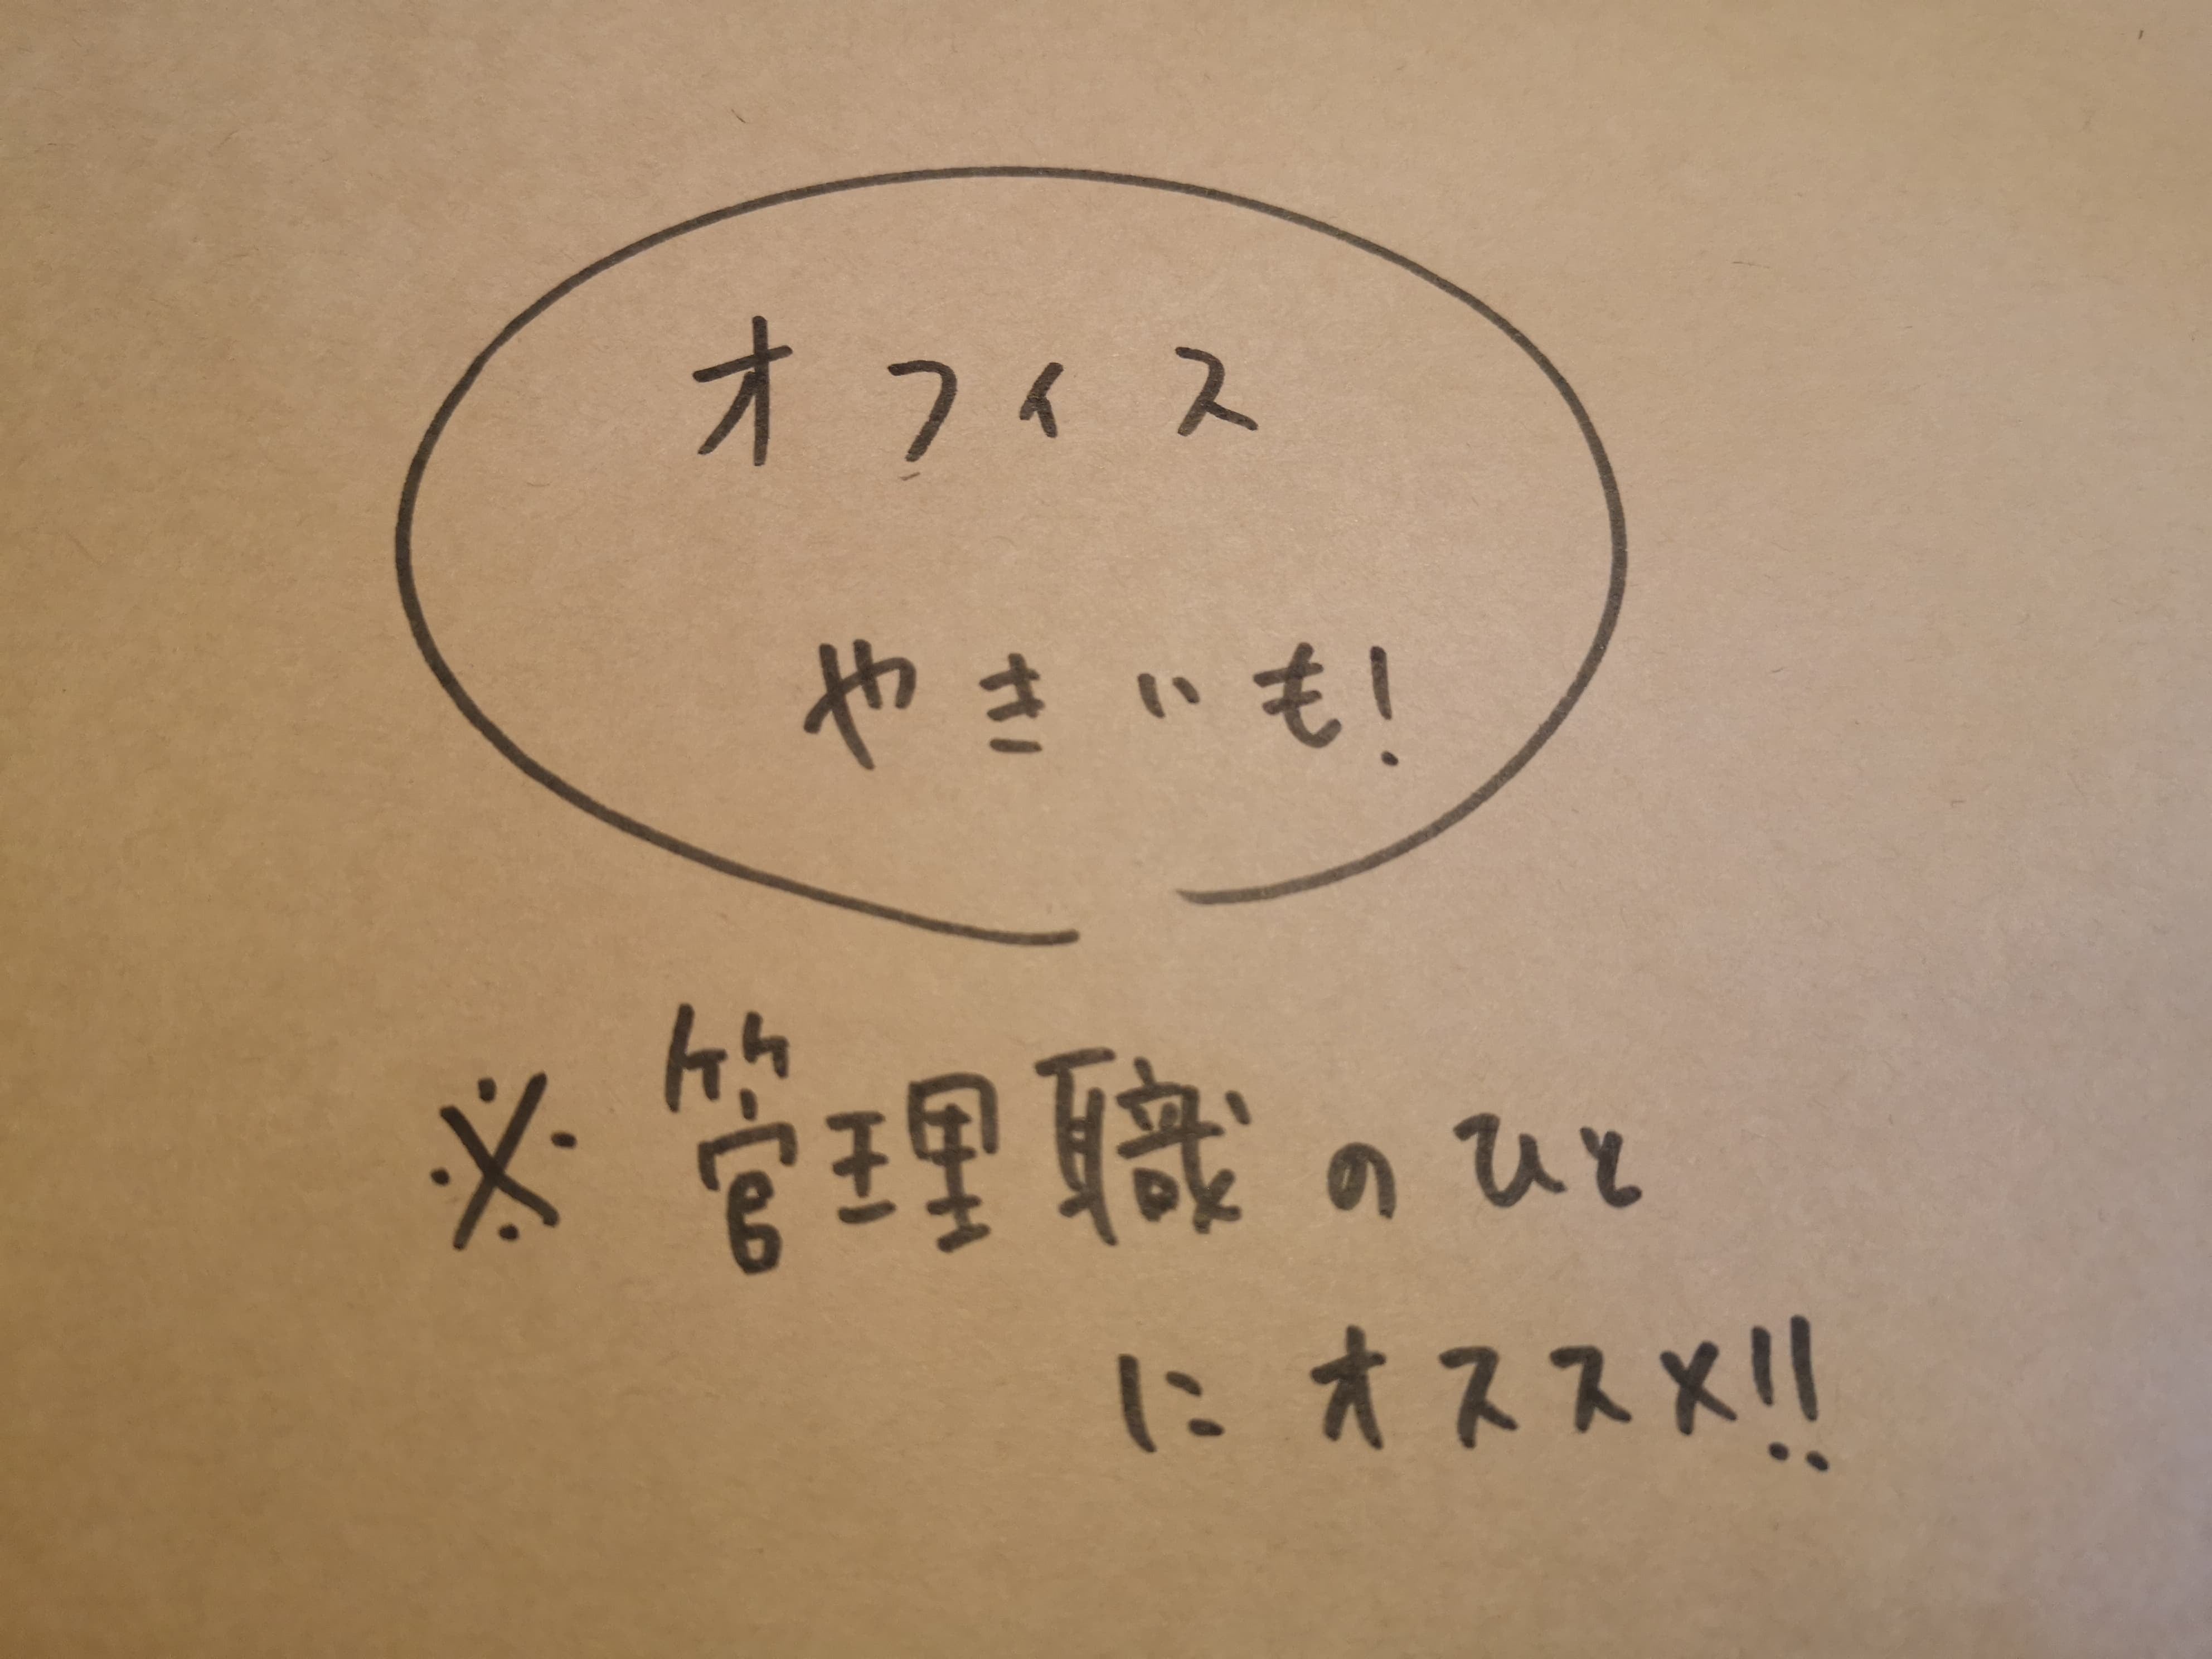 オフィス
やきいも!
※管理職のひと
にオススメ!!